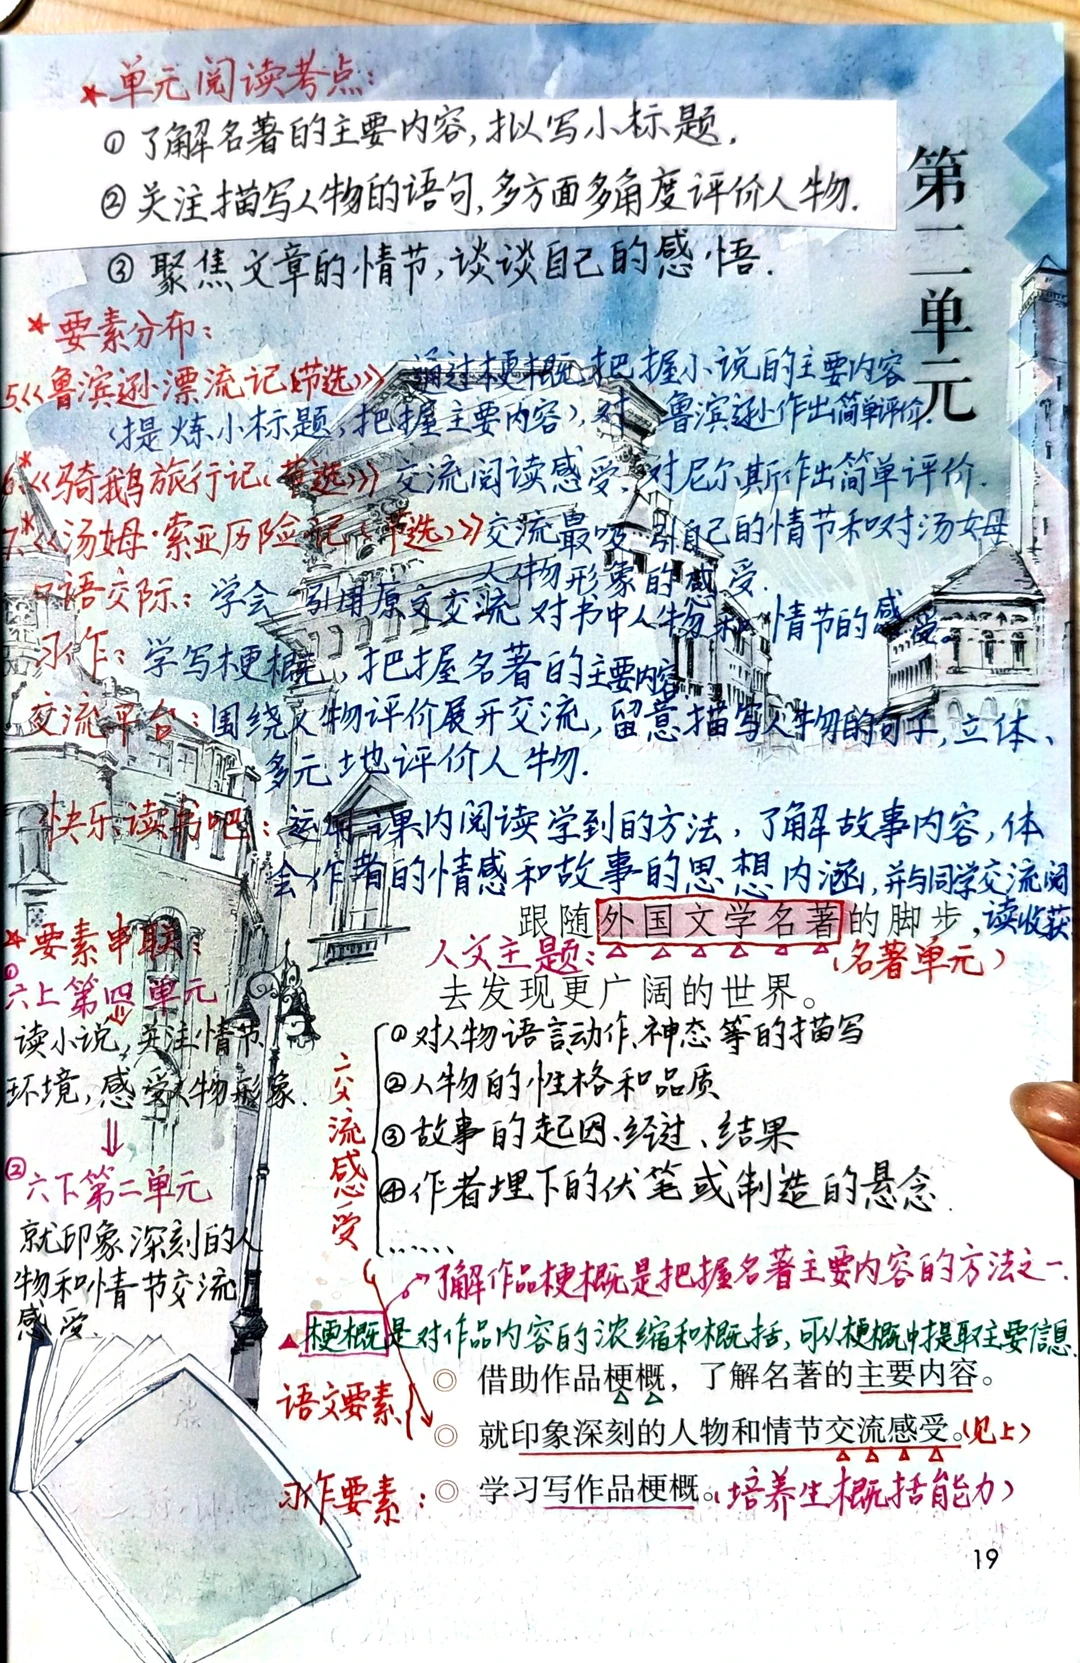 *单元阅读考点：
①了解名著的主要内容，拟写小标题.
②关注描写人物的语句，多方面多角度评价人物.
③聚焦文章的情节，谈谈自己的感悟.
第二单元
*要素分布：
5.《鲁滨逊漂流记(节选)》 通过梗概，把握小说的主要内容
(提炼小标题，把握主要内容)，对 鲁滨逊作出简单评价.
6.*《骑鹅旅行记(节选)》交流阅读感受，对尼尔斯作出简单评价.
7.*《汤姆·索亚历险记(节选)》交流最吸引自己的情节和对汤姆
人物形象的感受.
口语交际：学会 引用原文交流 对书中人物和 情节的感受.
习作：学写梗概，把握名著的主要内容
交流平台：围绕人物评价展开交流，留意描写人物的句子，立体、
多元地评价人物.
快乐读书吧：运用课内阅读学到的方法，了解故事内容，体
会作者的情感和故事的思想内涵，并与同学交流阅
读收获
跟随外国文学名著的脚步，
人文主题： (名著单元)
去发现更广阔的世界。
*要素串联：
①六上第四单元
读小说，关注情节、
环境，感受人物形象.
⇓
②六下第二单元
就印象深刻的人
物和情节交流
感受.
交流感受
①对人物语言动作、神态等的描写
②人物的性格和品质
③故事的起因、经过、结果
④作者埋下的伏笔或制造的悬念.
……
了解作品梗概是把握名著主要内容的方法之一.
▲梗概是对作品内容的浓缩和概括，可从梗概中提取主要信息.
语文要素
◎ 借助作品梗概，了解名著的主要内容。
◎ 就印象深刻的人物和情节交流感受。(见上)
习作要素：◎ 学习写作品梗概。(培养生概括能力)
19